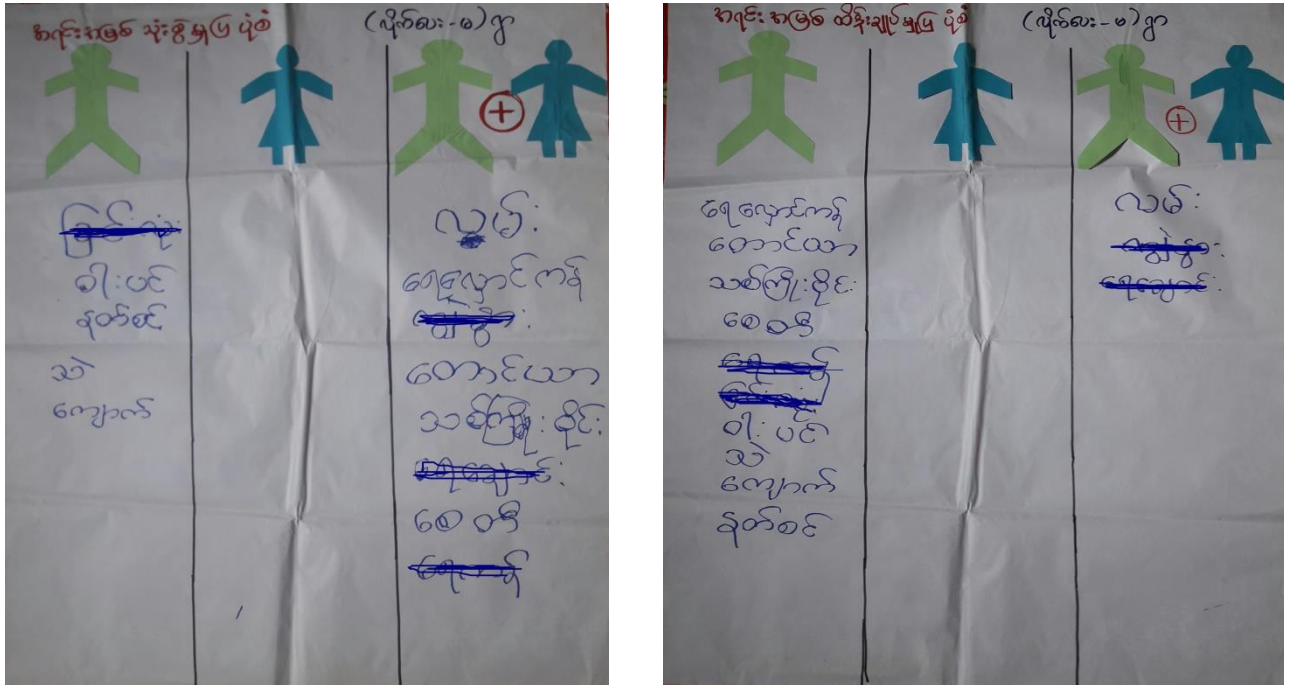 အရင်းအမြစ် သုံးစွဲမှုပြ ပုံစံ
(လိုက်လး-မ) ရွာ
+
ဝါးပင်
နတ်စင်
သဲ
ကျောက်
လမ်း
ရေလှောင်ကန်
တောင်ယာ
သစ်ကြိုးဝိုင်း
စေတီ
အရင်းအမြစ် ထိန်းချုပ်မှုပြ ပုံစံ
(လိုက်လး-မ) ရွာ
+
ရေလှောင်ကန်
တောင်ယာ
သစ်ကြိုးဝိုင်း
စေတီ
ဝါးပင်
သဲ
ကျောက်
နတ်စင်
လမ်း